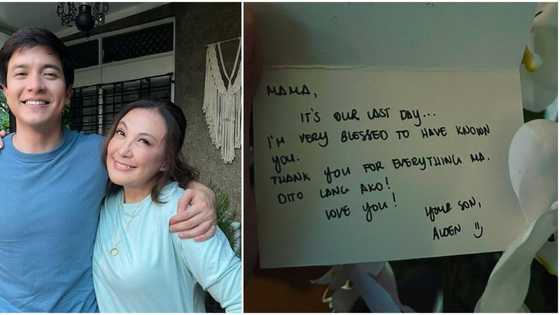 MAMA,
IT'S OUR LAST DAY...
I'M VERY BLESSED TO HAVE KNOWN
YOU.
THANK YOU FOR EVERYTHING MA.
DITO LANG AKO!
LOVE YOU!
YOUR SON,
ALDEN